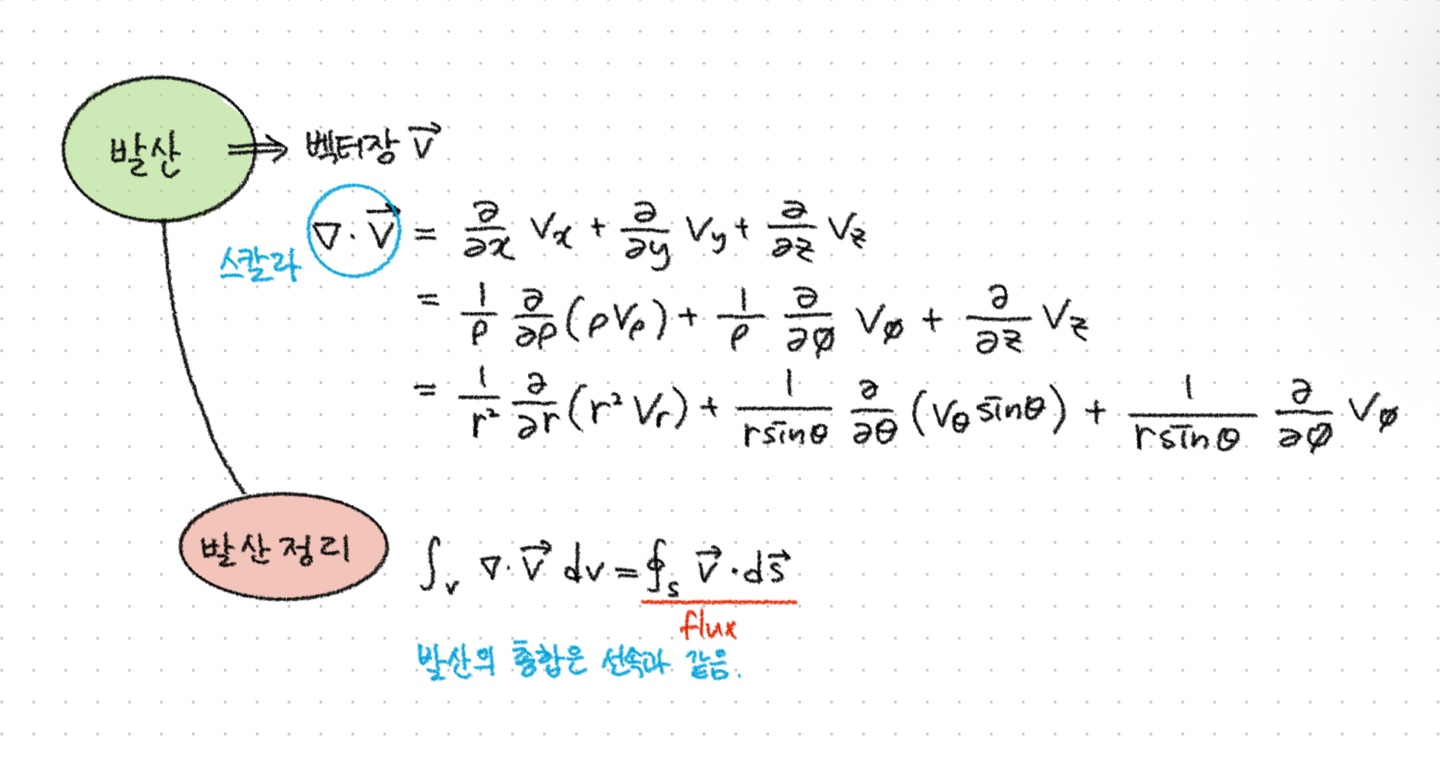 발산 ⇒ 벡터장 V⃗
스칼라 ∇·V⃗ = ∂/∂x Vx + ∂/∂y Vy + ∂/∂z Vz
= 1/ρ ∂/∂ρ (ρVρ) + 1/ρ ∂/∂∅ V∅ + ∂/∂z Vz
= 1/r² ∂/∂r (r² Vr) + 1/(r sinθ) ∂/∂θ (Vθ sinθ) + 1/(r sinθ) ∂/∂∅ V∅
발산정리 ∫v ∇·V⃗ dv = ∮s V⃗·ds⃗
flux
발산의 총합은 선속과 같음.